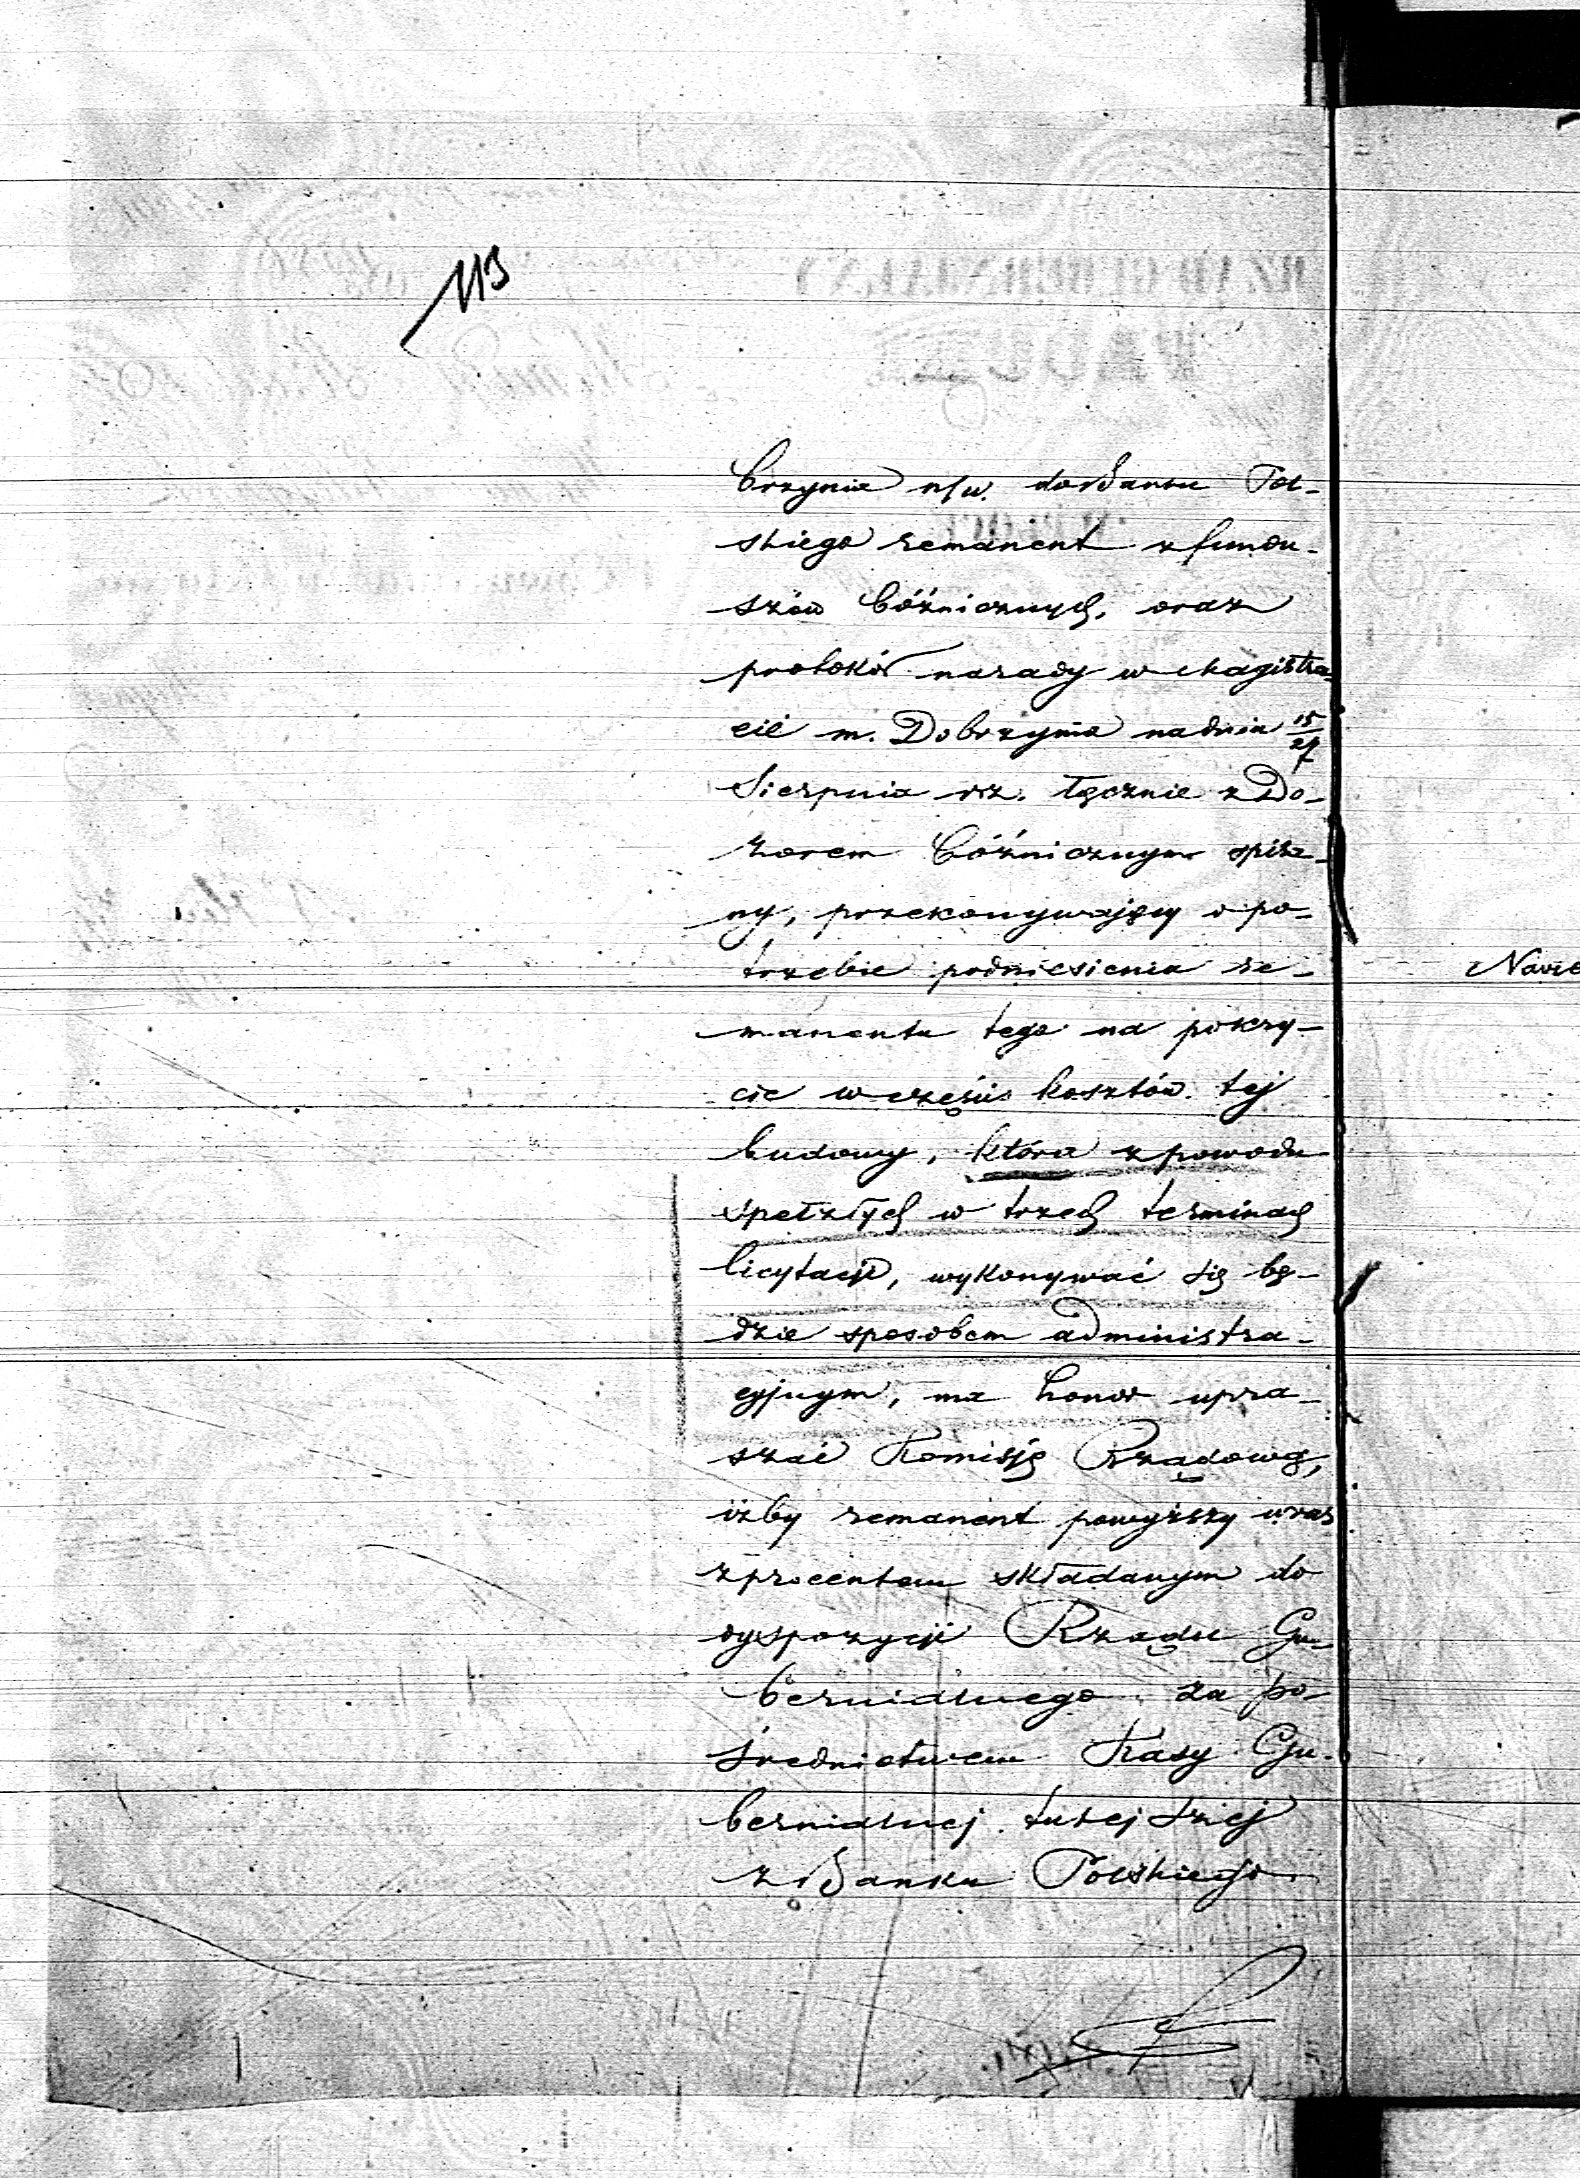 113
brzynia n/w. do Banku Pol-
skiego remanent z fundu-
szów bóżnicznych, oraz
protokół narady w Magistra-
cie m. Dobrzynia na dniu 15/27
Sierpnia rz. łącznie z Do-
zorem bóżnicznym spisa-
ny, przekonywający o po-
trzebie podniesienia re-
manentu tego na pokry-
cie w części kosztów tej
budowy, która z powodu
spełzłych w trzech terminach
licytacji, wykonywać się bę-
dzie sposobem administra-
cyjnym, ma honor upra-
szać Komisję Rządową,
iżby remanent powyższy wraz
z procentem składanym do
dyspozycji Rządu Gu-
bernialnego za po-
średnictwem Kasy Gu-
bernialnej tutejszej
z Banku Polskiego